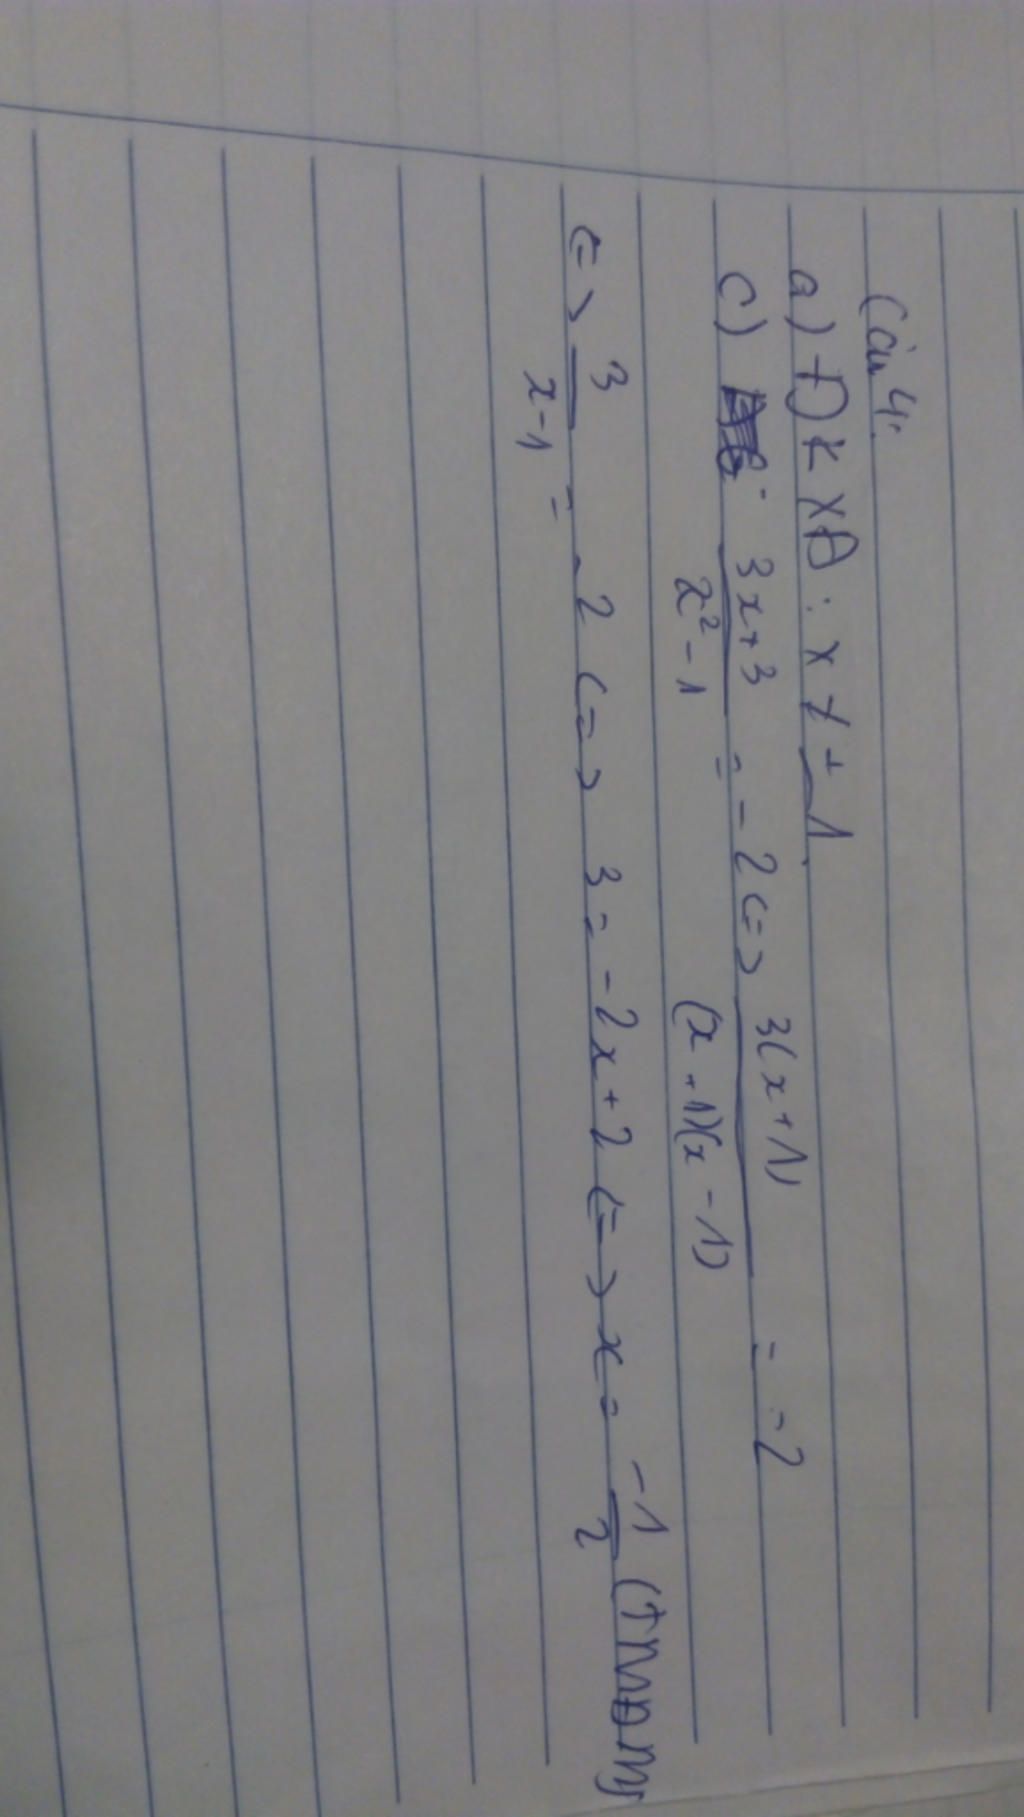 Câu 4:
a) ĐKXĐ: x ≠ ± 1.
c) (3x+3)/(x² - 1) = -2 <=> 3(x+1)/((x+1)(x-1)) = -2
<=> 3/(x-1) = -2 <=> 3 = -2x+2 <=> x = -1/2 (TMĐK)